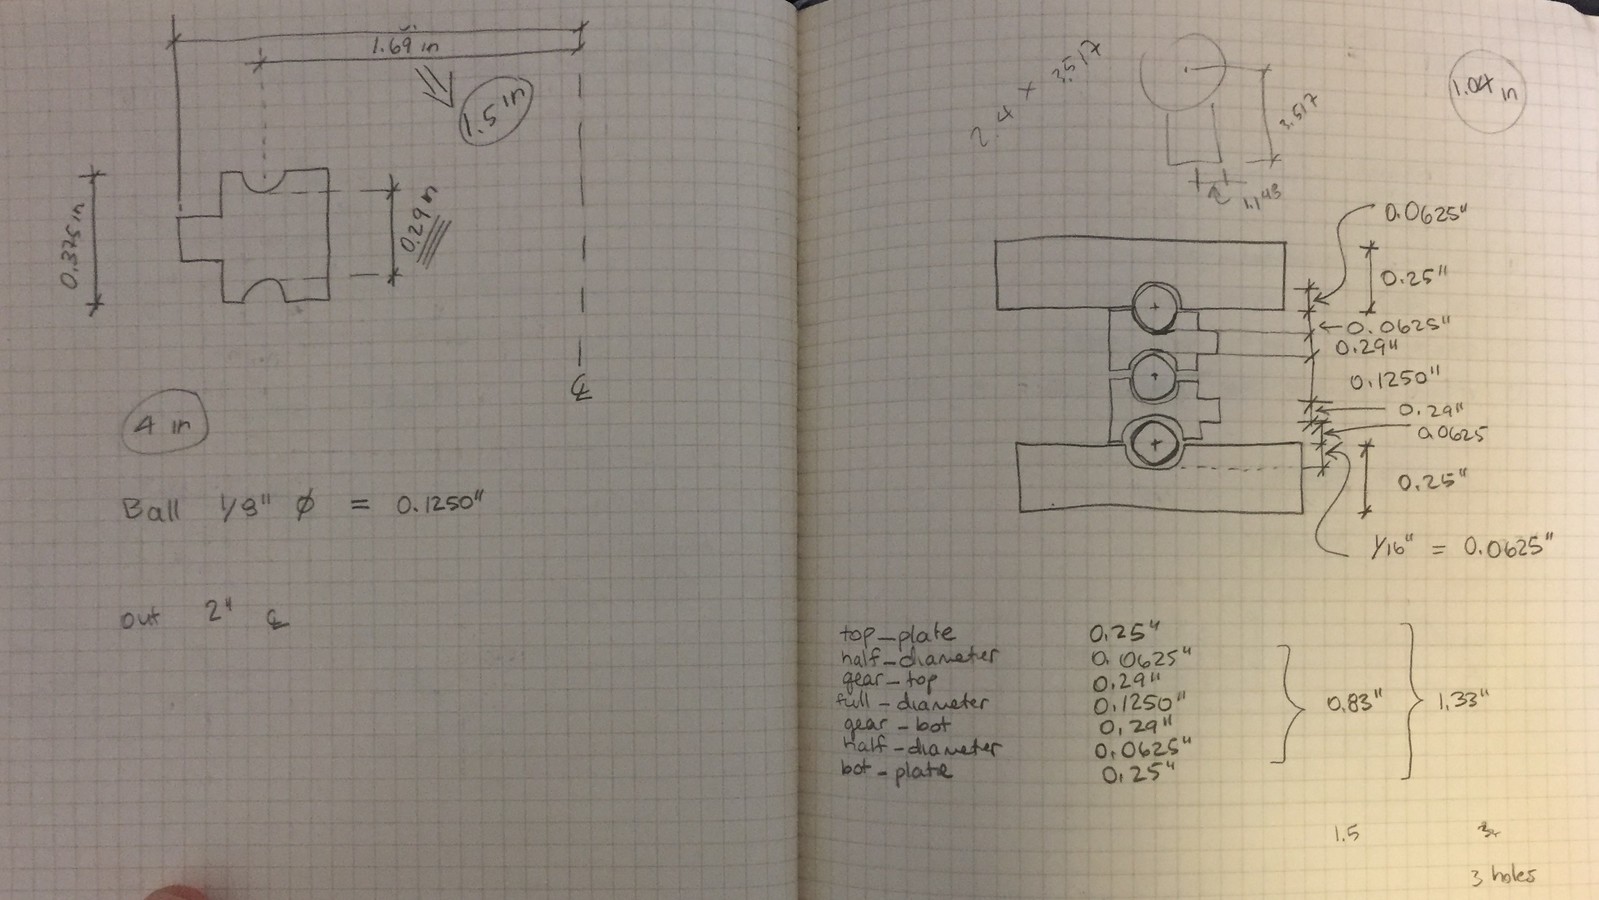 1.69 in
1.5 in
0.375 in
0.29 in
℄
4 in
Ball 1/8" ϕ = 0.1250"
out 2" ℄
2.4 x 3.517
3.517
2
1.143
1.04 in
0.0625"
0.25"
0.0625"
0.29"
0.1250"
0.29"
0.0625
0.25"
1/16" = 0.0625"
top_plate 0.25"
half_diameter 0.0625"
gear_top 0.29"
full_diameter 0.1250" 0.83" 1.33"
gear_bot 0.29"
half_diameter 0.0625"
bot_plate 0.25"
1.5
3 holes